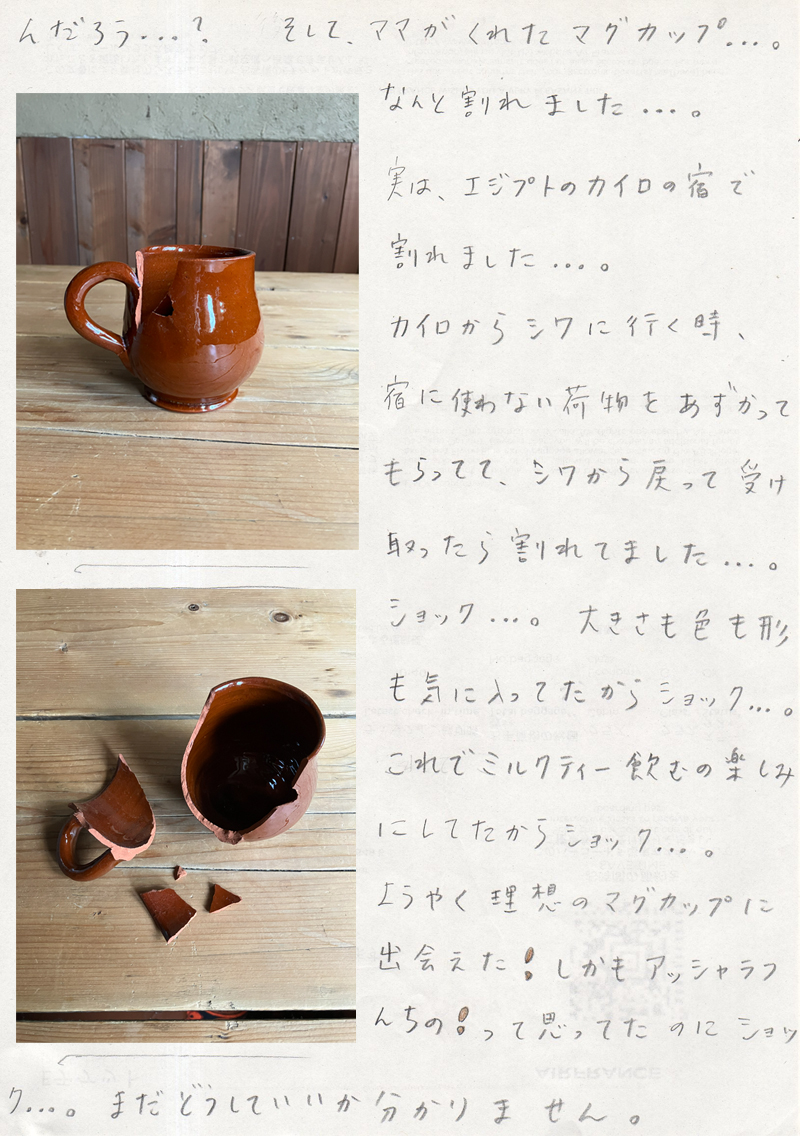 んだろう...? そして、ママがくれたマグカップ...。
なんと割れました...。
実は、エジプトのカイロの宿で
割れました...。
カイロからシワに行く時、
宿に使わない荷物をあずかって
もらってて、シワから戻って受け
取ったら割れてました...。
ショック...。 大きさも色も形
も気に入ってたからショック...。
これでミルクティー飲むの楽しみ
にしてたからショック...。
ようやく理想のマグカップに
出会えた!しかもアッシャラフ
んちの!って思ってたのにショッ
ク...。まだどうしていいか分かりません。
AIRFRANCE